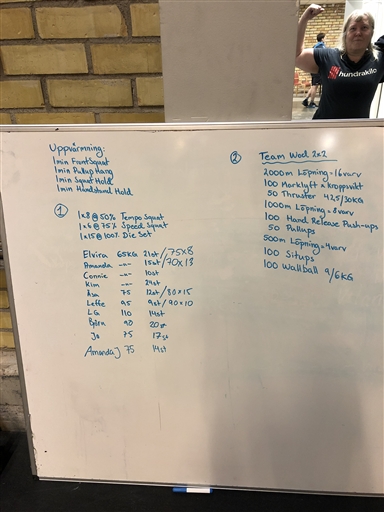 hundrakilo
Uppvärmning:
1min FrontSquat
1min Pullup Hang
1min Squat Hold
1min Handstand Hold
①
1x8 @ 50% Tempo Squat
1x6 @ 75% Speed Squat
1x15 @ 100% Die Set
Elvira 65KG 21st/75x8
Amanda -"- 15st/70x13
Connie -"- 10st
Kim -"- 29st
Åsa 75 12st/80x15
Leffe 95 9st/90x10
LG 110 14st
Björn 90 20st
Jo 75 17st
Amanda J 75 14st
② Team Wod 2x2
2000m Löpning = 16varv
100 Marklyft x kroppsvikt
50 Thruster 42,5/30KG
1000m Löpning = 8varv
100 Hand Release Push-ups
50 Pullups
500m Löpning = 4varv
100 Situps
100 Wallball 9/6KG